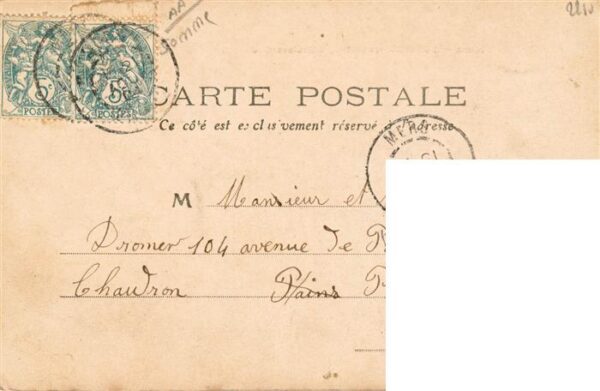 2210
AA
Somme
5c
POSTES
5c
POSTES
CARTE POSTALE
Ce côté est exclusivement réservé à l'adresse
MERS
M Monsieur et
Dromer 104 avenue de
Chaudron Plains